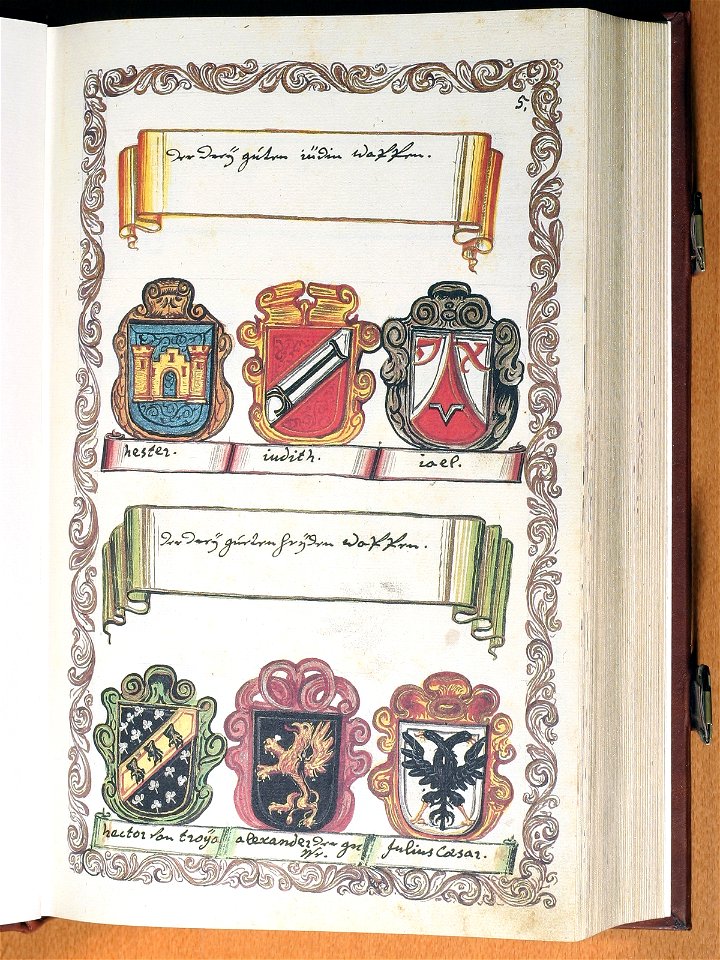 5.
der dreÿ gúten iüdin waffen.
hester.
iudith.
iael.
der dreÿ gúeten heÿden waffen.
hector von troÿa
alexander der gr
Julius Cæsar.